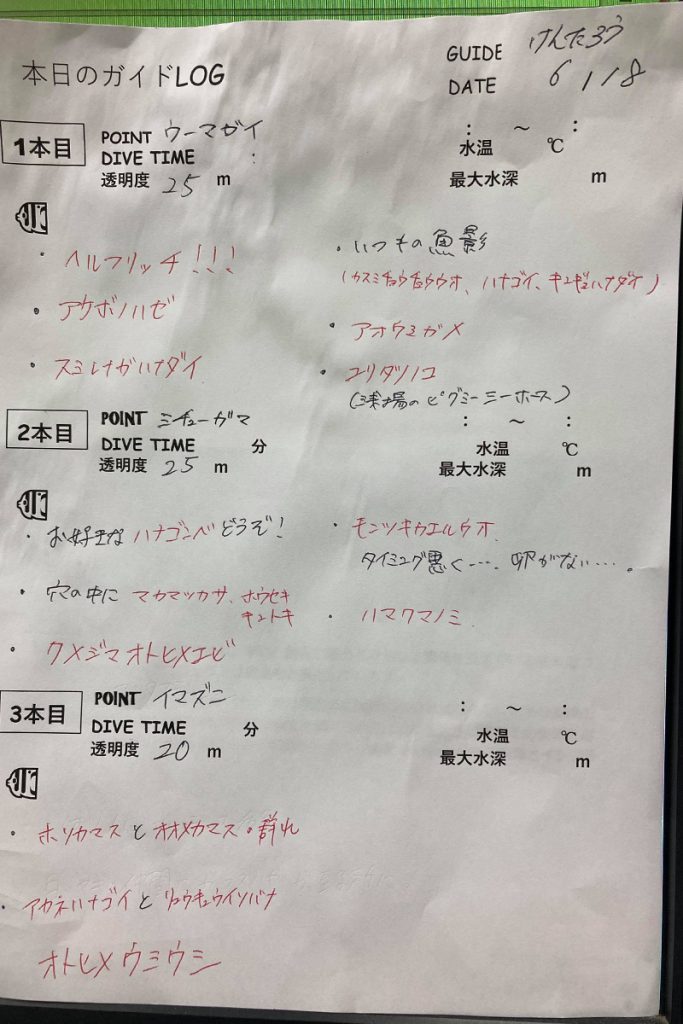 本日のガイドLOG
GUIDE けんたろう
DATE 6/18
1本目
POINT ウーマガイ
DIVE TIME :
透明度 25 m
: ～ :
水温 ℃
最大水深 m
・ヘルフリッチ!!!
・アケボノハゼ
・スミレナガハナダイ
・いつもの魚影
(カスミチョウチョウウオ、ハナゴイ、キンギョハナダイ)
・アオウミガメ
・ユリタツノコ
(浅場のピグミーシーホース)
2本目
POINT ミチューガマ
DIVE TIME 分
透明度 25 m
: ～ :
水温 ℃
最大水深 m
・お好きなハナゴンベどうぞ!
・穴の中に アカマツカサ、ホウセキ
キントキ
・クメジマオトヒメエビ
・モンツキカエルウオ
タイミング悪く…. 卵がない….。
・ハマクマノミ
3本目
POINT イマズニ
DIVE TIME 分
透明度 20 m
: ～ :
水温 ℃
最大水深 m
・ホソカマスとオオメカマスの群れ
・アカネハナゴイとリュウキュウイソバナ
オトヒメウミウシ